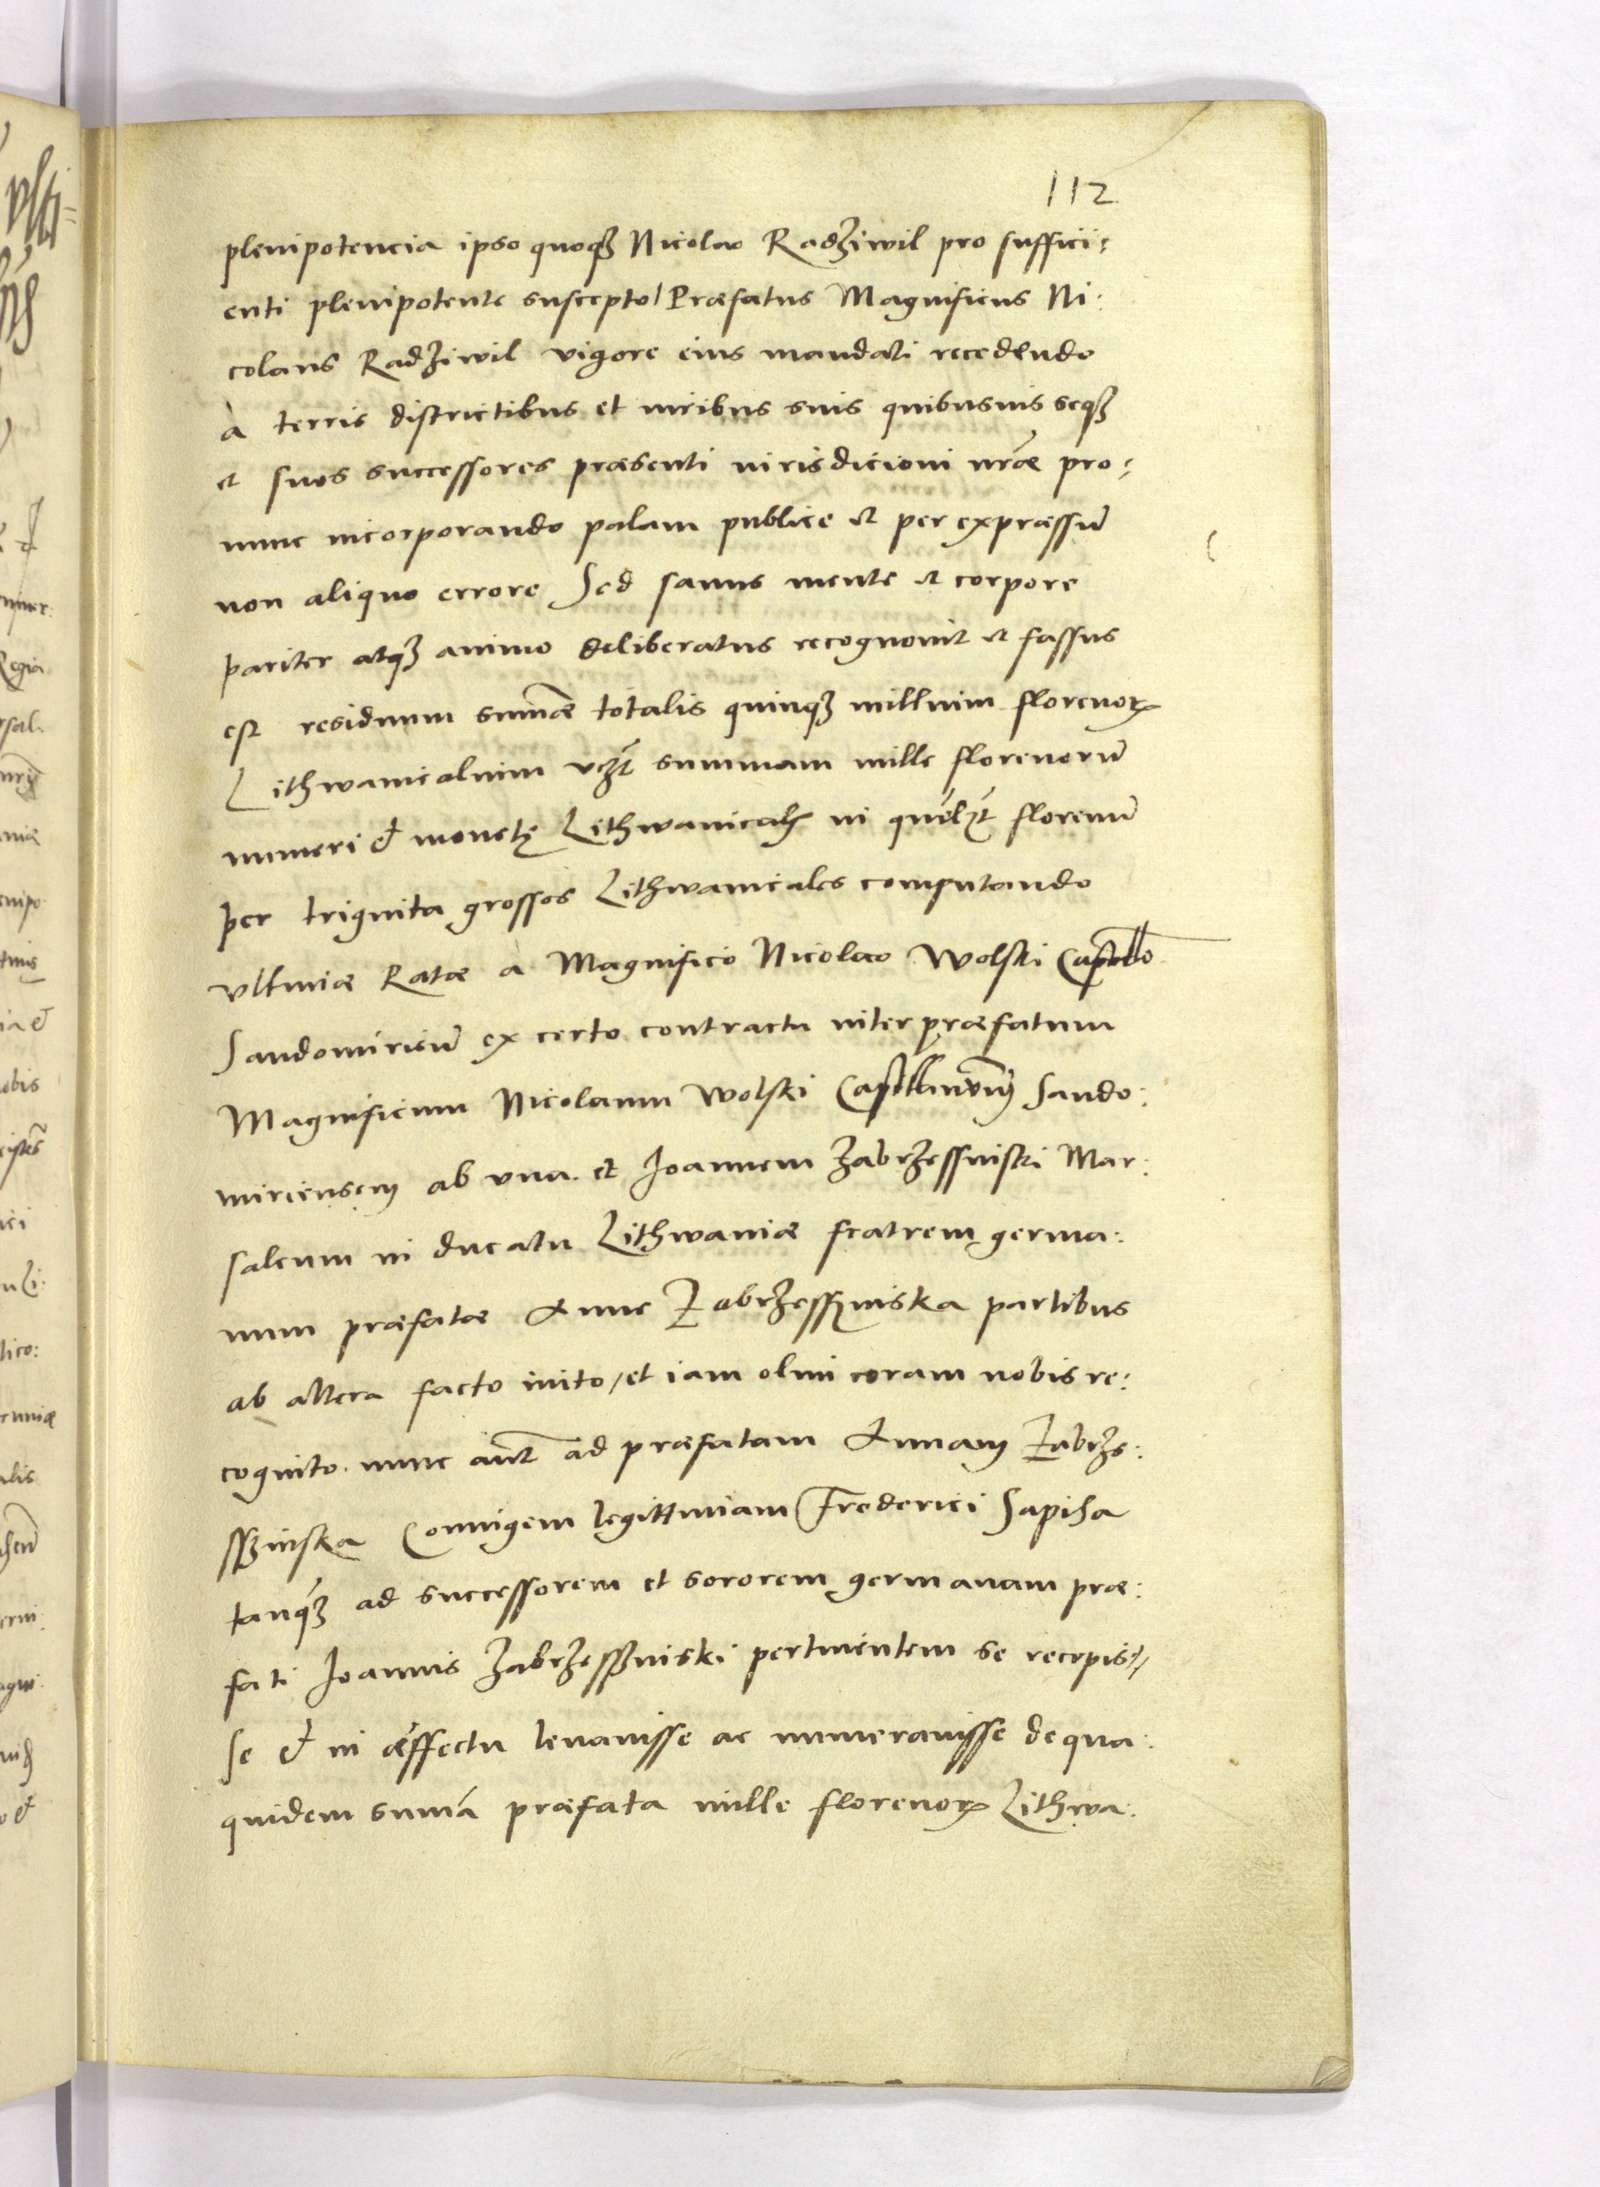 112
plenipotencia ipso quoqꝫ Nicolao Radziwil pro suffici:
enti plenipotente suscepto/ Præfatus Magnificus Ni:
colaus Radziwil vigore eius mandati recedendo
à terris districtibus et iuribus suis quibusuis seqꝫ
et suos successores præsenti iurisdicioni nr̃æ pro:
nunc incorporando palam publice et per expræssũ
non aliquo errore Sed sanus mente et corpore
pariter atqꝫ animo deliberatus recognouit et fassus
est residuum sum̃æ totalis quinqꝫ millium florenoꝝ
Lithwanicalium vꝫt summam mille florenorũ
numeri et monetę Lithwanicalis in quẽlꝫt florenũ
per triginta grossos Lithwanicales computando
vltimæ Ratæ a Magnifico Nicolao Wolski Castello
Sandomirieñ ex certo contractu inter præfatum
Magnificum Nicolaum Wolski Castellanum Sando:
miriensem ab vna et Joannem Zabrzessinski Mar:
salcum in ducatu Lithwaniæ fratrem germa:
num præfatæ Anne Zabrzesszinska partibus
ab altera facto inito/ et iam olim coram nobis re:
cognito. nunc aut̃ ad præfatam Annam Zabrze:
sszinska Coniugem legittimam Frederici Sapiha
tanqꝫ ad successorem et sororem germanam præ:
fati Joannis Zabrzesszinski pertinentem se recepis:
se et in æffectu leuauisse ac numerauisse de qua:
quidem sum̃a præfata mille florenoꝝ Lithwa: